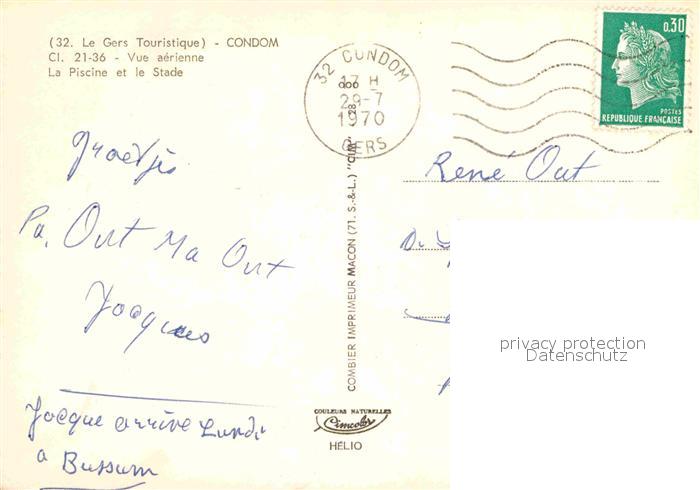 (32. Le Gers Touristique) - CONDOM
Cl. 21-36 - Vue aérienne
La Piscine et le Stade
32 CONDOM
17 H
29-7
1970
GERS
0,30
POSTES
REPUBLIQUE FRANÇAISE
Groetjes
Pa. Out Ma Out
Jacques
Jacque arrive Lundi
a Bussum
COMBIER IMPRIMEUR MACON (71. S.-&-L.) "CIM"
COULEURS NATURELLES
Cimcolor
HÉLIO
René Out
privacy protection
Datenschutz